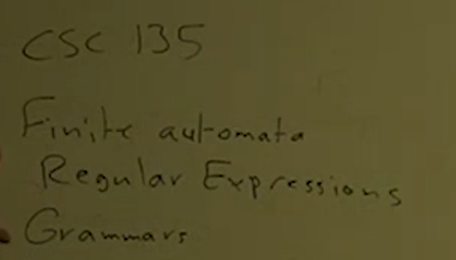 CSC 135
Finite automata
Regular Expressions
Grammars